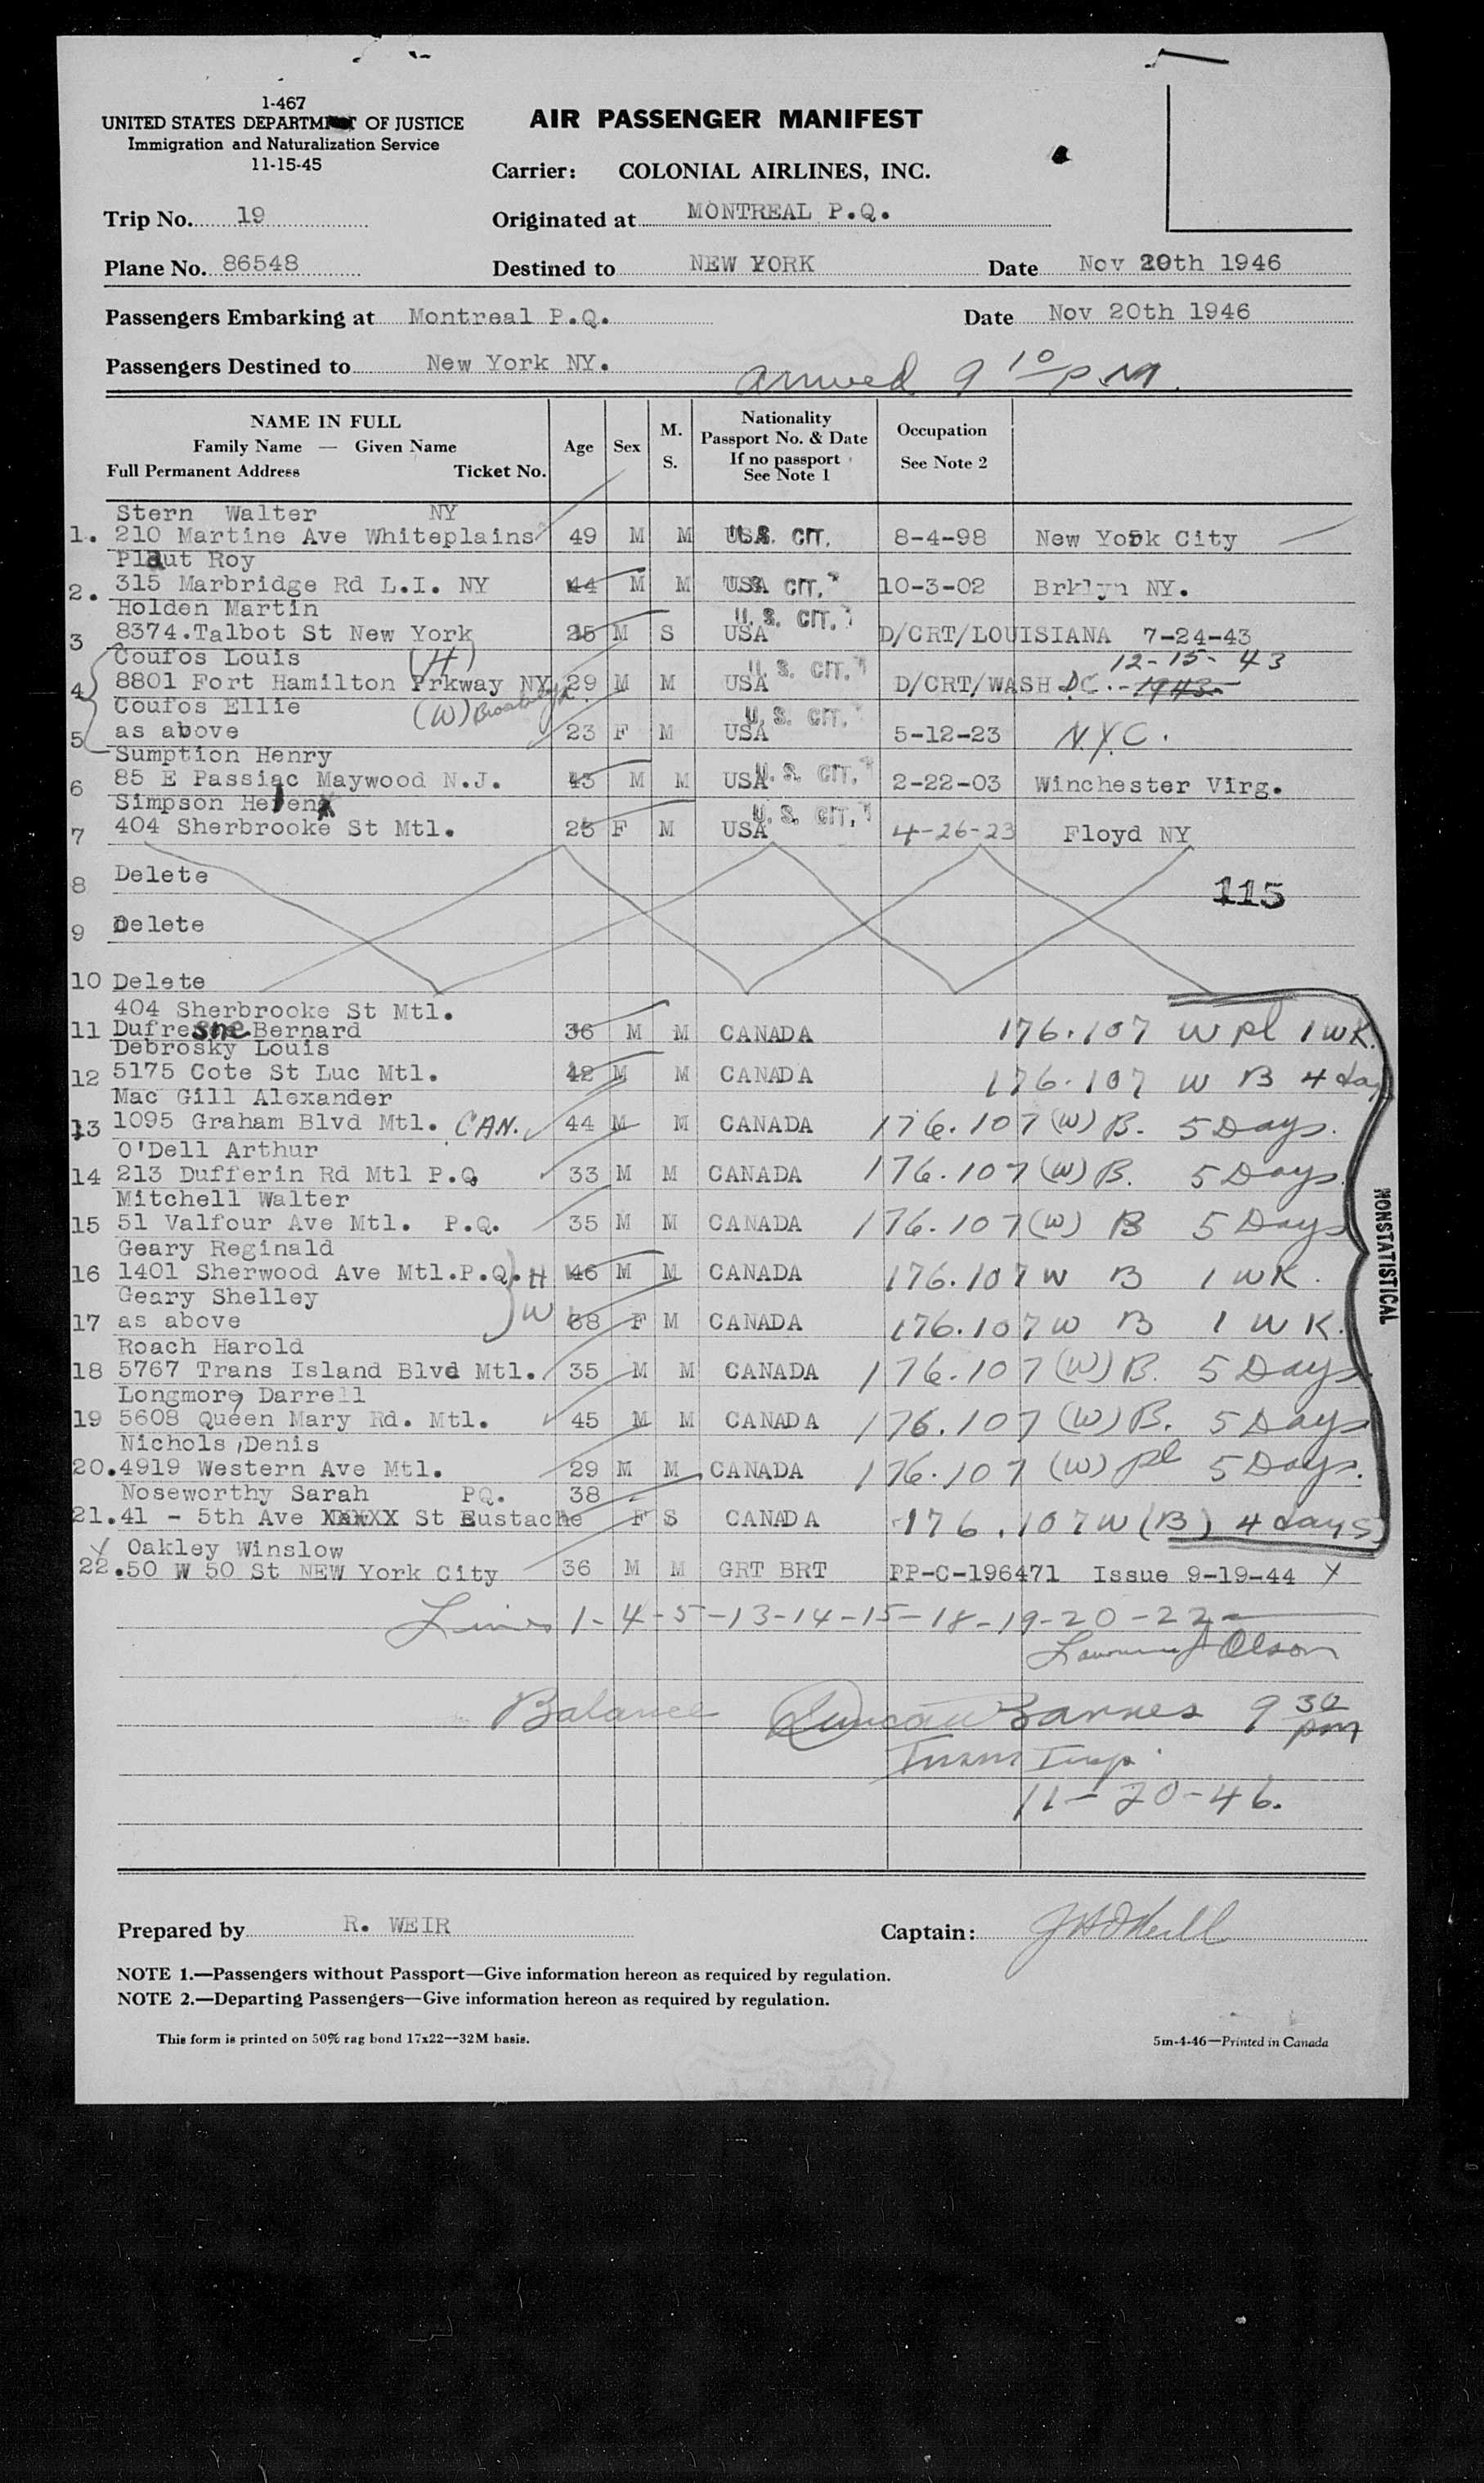 1-467
UNITED STATES DEPARTMENT OF JUSTICE
Immigration and Naturalization Service
11-15-45
AIR PASSENGER MANIFEST
Carrier: COLONIAL AIRLINES, INC.
Trip No. 19
Originated at MONTREAL P.Q.
Plane No. 86548
Destined to NEW YORK
Date Nov 20th 1946
Passengers Embarking at Montreal P.Q.
Date Nov 20th 1946
Passengers Destined to New York NY.
arrived 9 10 P.M.
NAME IN FULL
Family Name — Given Name
Full Permanent Address Ticket No.
Age
Sex
M.
S.
Nationality
Passport No. & Date
If no passport
See Note 1
Occupation
See Note 2
Stern Walter NY
1. 210 Martine Ave Whiteplains 49 M M USA U.S. CIT. 8-4-98 New York City
Plaut Roy
2. 315 Marbridge Rd L.I. NY 44 M M USA CIT. 10-3-02 Brklyn NY.
Holden Martin
3 8374.Talbot St New York 25 M S USA U. S. CIT. D/CRT/LOUISIANA 7-24-43
Coufos Louis (H) 12-15-43
4 8801 Fort Hamilton Prkway NY 29 M M USA U. S. CIT. D/CRT/WASH DC. -1943-
Coufos Ellie (W) Brooklyn
5 as above 23 F M USA U. S. CIT. 5-12-23 N.Y.C.
Sumption Henry
6 85 E Passiac Maywood N.J. 43 M M USA U. S. CIT. 2-22-03 Winchester Virg.
Simpson Helen
7 404 Sherbrooke St Mtl. 23 F M USA U. S. CIT. 4-26-23 Floyd NY
8 Delete
115
9 Delete
10 Delete
404 Sherbrooke St Mtl.
11 Dufresne Bernard 36 M M CANADA 176.107 W pl 1 WK.
Debrosky Louis
12 5175 Cote St Luc Mtl. 42 M M CANADA 176.107 W B 4 day
Mac Gill Alexander
13 1095 Graham Blvd Mtl. CAN. 44 M M CANADA 176.107 (W) B. 5 Days.
O'Dell Arthur
14 213 Dufferin Rd Mtl P.Q 33 M M CANADA 176.107 (W) B. 5 Days
Mitchell Walter
15 51 Valfour Ave Mtl. P.Q. 35 M M CANADA 176.107 (W) B 5 Days
Geary Reginald
16 1401 Sherwood Ave Mtl.P.Q. H 46 M M CANADA 176.107 W B 1 WK.
Geary Shelley
17 as above W 38 F M CANADA 176.107 W B 1 WK.
Roach Harold
18 5767 Trans Island Blvd Mtl. 35 M M CANADA 176.107 (W) B. 5 Days
Longmore, Darrell
19 5608 Queen Mary Rd. Mtl. 45 M M CANADA 176.107 (W) B. 5 Days
Nichols, Denis
20. 4919 Western Ave Mtl. 29 M M CANADA 176.107 (W) pl 5 Days.
Noseworthy Sarah PQ. 38
21. 41 - 5th Ave XXXXX St Eustache F S CANADA 176.107 W (B) 4 days
NONSTATISTICAL
Oakley Winslow
22. 50 W 50 St NEW York City 36 M M GRT BRT PP-C-196471 Issue 9-19-44 X
Lines 1-4-5-13-14-15-18-19-20-22
Olson
Balance Duncan Barnes 9 30 pm
Imm Insp.
11-20-46.
Prepared by R. WEIR
Captain: J H O'Neill
NOTE 1.—Passengers without Passport—Give information hereon as required by regulation.
NOTE 2.—Departing Passengers—Give information hereon as required by regulation.
This form is printed on 50% rag bond 17x22—32M basis.
5m-4-46—Printed in Canada